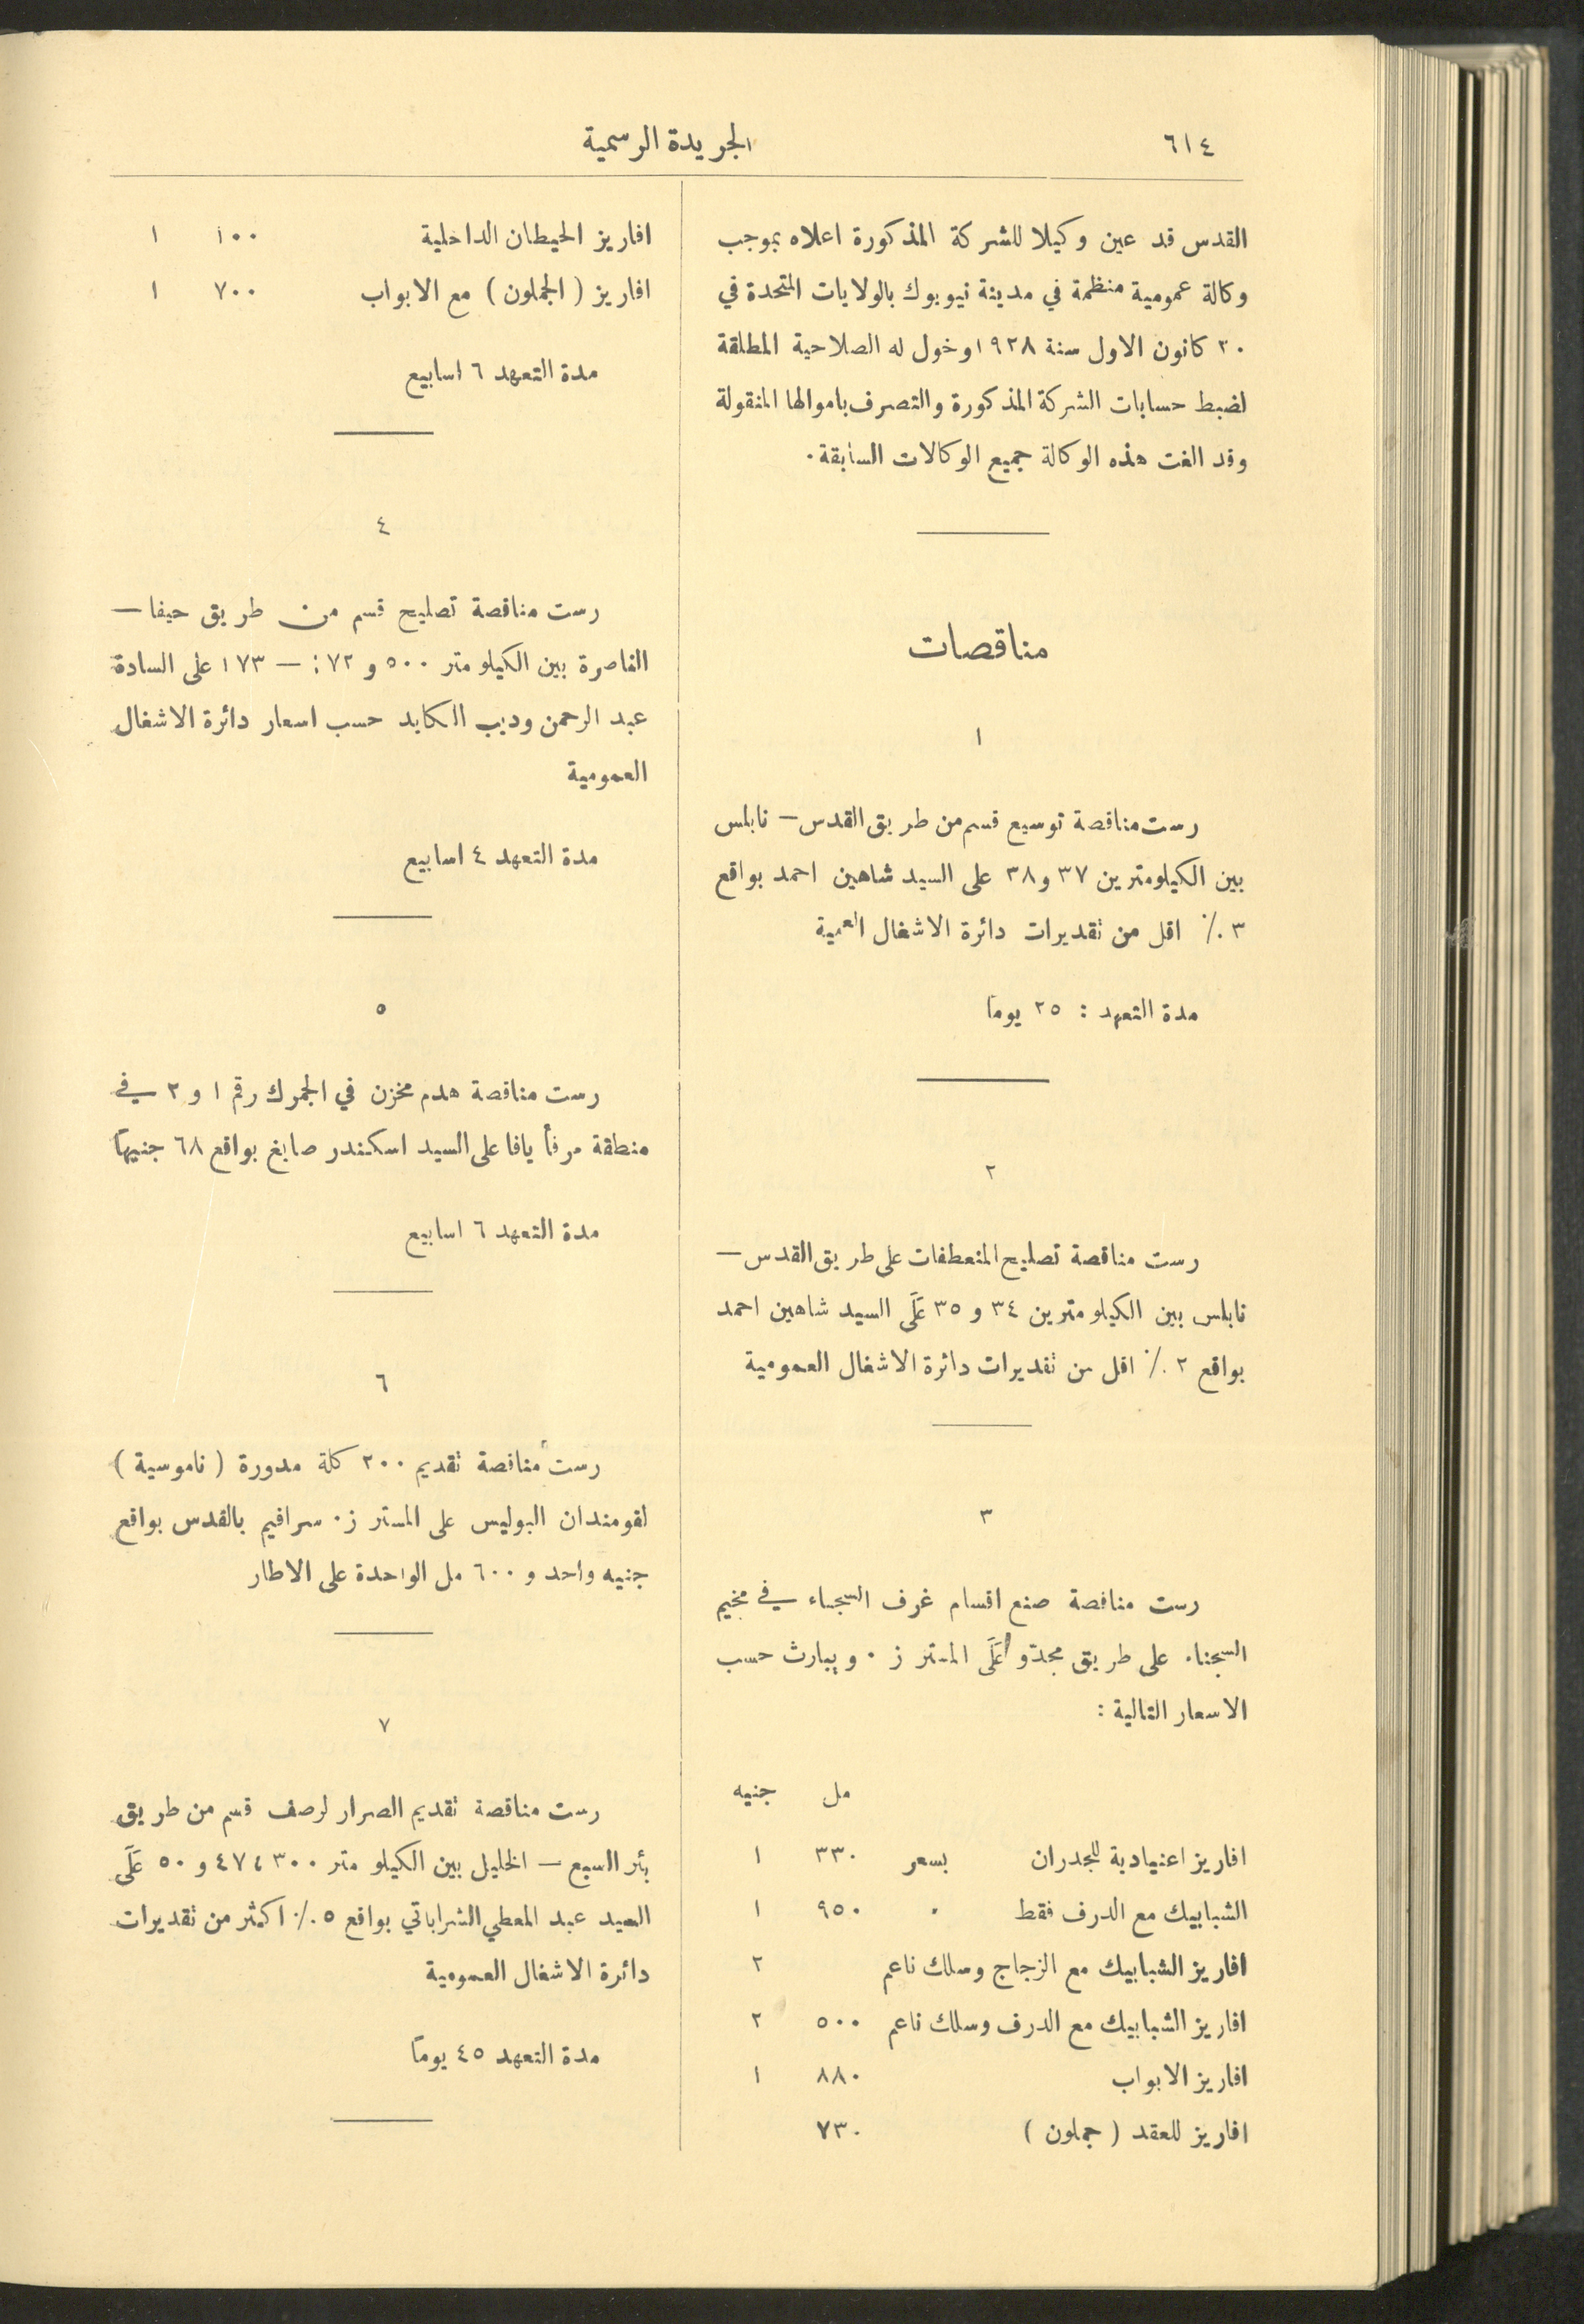 ٦١٤
الجريدة الرسمية
القدس قد عين وكيلا للشركة المذكورة اعلاه بموجب
وكالة عمومية منظمة في مدينة نيويوك بالولايات المتحدة في
٢٠ كانون الاول سنة ١٩٢٨ وخول له الصلاحية المطلقة
لضبط حسابات الشركة المذكورة والتصرف باموالها المنقولة
وقد الغت هذه الوكالة جميع الوكالات السابقة.
مناقصات
١
رست مناقصة توسيع قسم من طريق القدس — نابلس
بين الكيلومترين ٣٧ و٣٨ على السيد شاهين احمد بواقع
٣ ٪ اقل من تقديرات دائرة الاشغال العمية
مدة التعهد : ٢٥ يوماً
٢
رست مناقصة تصليح المنعطفات على طريق القدس —
نابلس بين الكيلو مترين ٣٤ و ٣٥ عَلَى السيد شاهين احمد
بواقع ٢ ٪ اقل من تقديرات دائرة الاشغال العمومية
٣
رست مناقصة صنع اقسام غرف السجناء في مخيم
السجناء على طريق مجدّو عَلَى المستر ز . ويبارث حسب
الاسعار التالية :
مل جنيه
افاريز اعتيادية للجدران بسعر ٣٣٠ ١
الشبابيك مع الدرف فقط ٠ ٩٥٠ ١
افاريز الشبابيك مع الزجاج وسلك ناعم ٢
افاريز الشبابيك مع الدرف وسلك ناعم ٥٠٠ ٢
افاريز الابواب ٨٨٠ ١
افاريز للعقد ( جملون ) ٧٣٠
افاريز الحيطان الداخلية ١٠٠ ١
افاريز ( الجملون ) مع الابواب ٧٠٠ ١
مدة التعهد ٦ اسابيع
٤
رست مناقصة تصليح قسم من طريق حيفا —
الناصرة بين الكيلو متر ٥٠٠ و — ١٧٣ على السادة
عبد الرحمن وديب الكايد حسب اسعار دائرة الاشغال
العمومية
مدة التعهد ٤ اسابيع
٥
رست مناقصة هدم مخزن في الجمرك رقم ١ و ٢ في
منطقة مرفأ يافا على السيد اسكندر صايغ بواقع ٦٨ جنيهاً
مدة التعهد ٦ اسابيع
٦
رست مناقصة تقديم ٢٠٠ كلة مدورة ( ناموسية )
لقومندان البوليس على المستر ز. سرافيم بالقدس بواقع
جنيه واحد و ٦٠٠ مل الواحدة على الاطار
٧
رست مناقصة تقديم الصرار لرصف قسم من طريق
بئر السبع — الخليل بين الكيلو متر ٣٠٠ ،٤٧ و ٥٠ عَلَى
السيد عبد المعطي الشراباتي بواقع ٥ ٪ اكثر من تقديرات
دائرة الاشغال العمومية
مدة التعهد ٤٥ يوماً